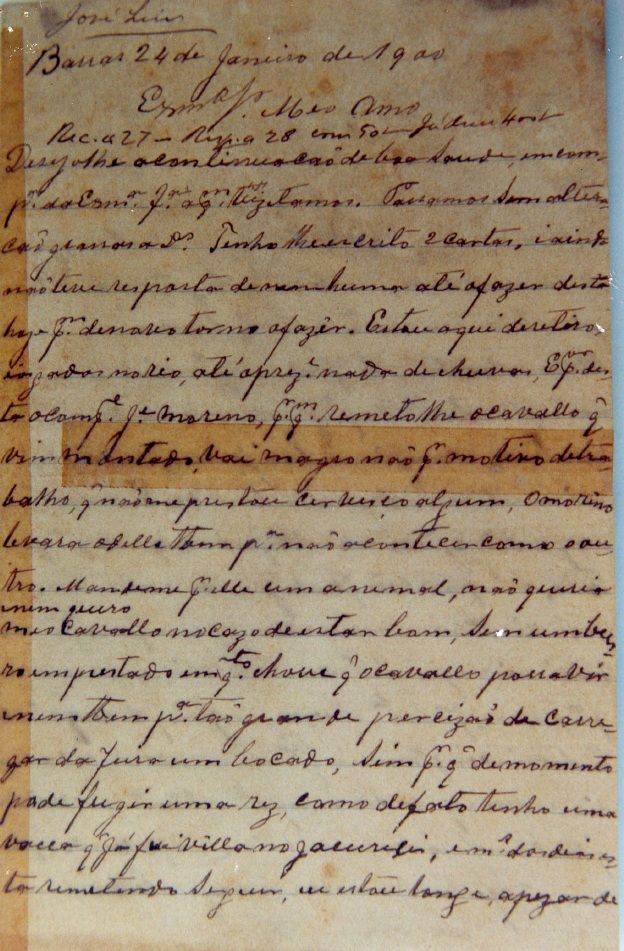 José Luis
Barras 24 de Janeiro de 1900
Exmº Sr. Meo Amo
Rec. a 27 – Resp. a 28
Desejolhe a continuacaõ de boa Saude, em com-
pª. da Comª. Fª. a qm.
Passamos Sem altera-
caõ graças a Ds. Tenho lhe escrito 2 cartas, i aind
naõ teve resposta de nenhuma até o fazer desta
hoje pr. denovo torno o fazêr. Estou aqui deretiro,
no rio, até aprezte. nada de chuvas, Espr. des-
ta o compe. Je. Moreno, pr. qm. remetolhe o cavallo q̃
vim montado, vai magro naõ pr. motivo detra-
balho, q̃ naõ me prestou cerviço algum, O moreno
levara odelle tbem pa. naõ acontecer como o ou-
tro. Mandeme pr. elle um animal, naõ queria
nem quero
meo cavallo no cazo de estar bom, Sim um bur-
ro emprestado emqto. chove q̃ o cavallo possa vir
inem tbem pa. taõ grande percizaõ de carre-
gar da feira um bocado, Sim pr. q̃ de momento
pode fugir uma rez, como de fato tenho uma
vacca q̃ já foi villa no Jacurici, e
ta remetendo Seguir, eu estou longe, apezar de